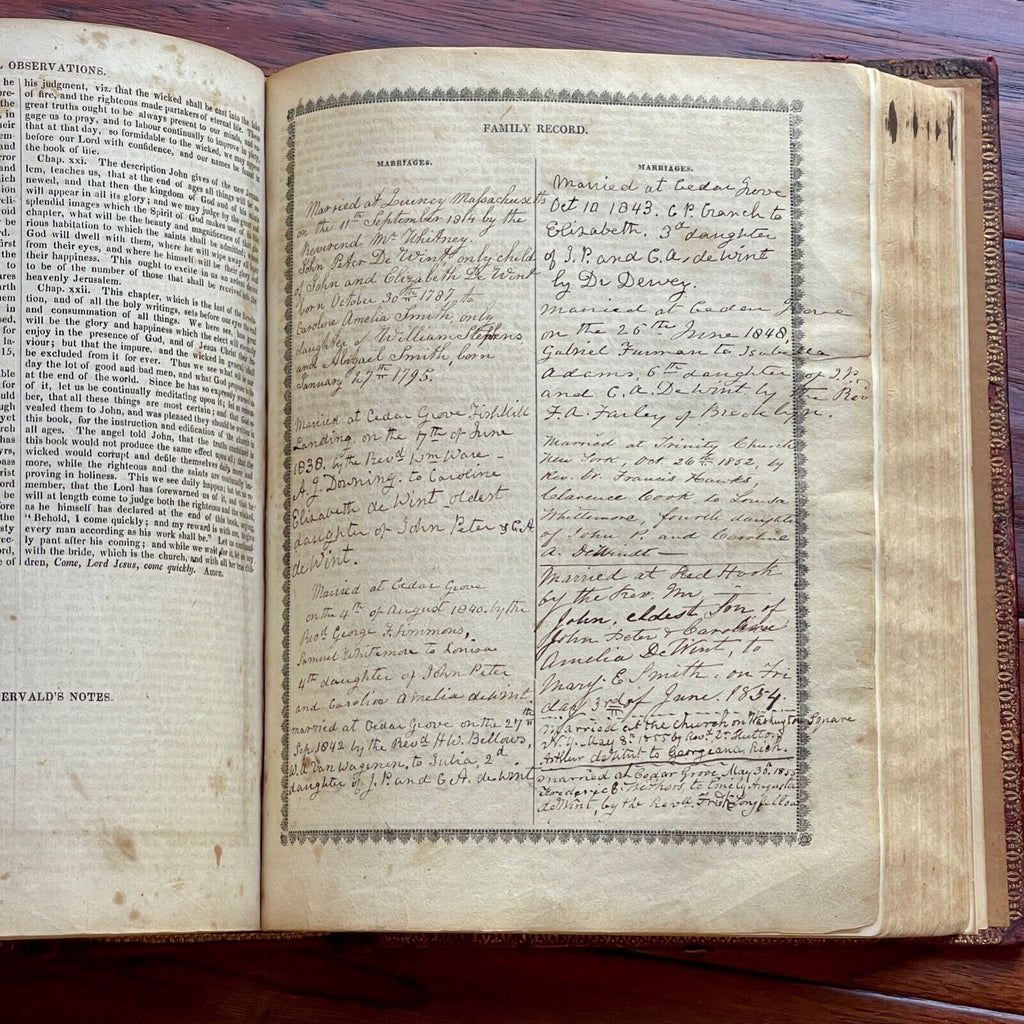 L OBSERVATIONS.
his judgment, viz. that the wicked shall be cast into the lake
of fire, and the righteous made partakers of eternal life. These
great truths ought to be always present to our minds, and en-
gage us to pray, and to labour continually to improve in piety,
that at that day, so formidable to the wicked, we may appear
before our Lord with confidence, and our names be found in
the book of life.
Chap. xxi. The description John gives of the new Jerusa-
lem, teaches us, that at the end of ages all things will be re-
newed, and that then the kingdom of God and of his saints
will appear in all its glory; and we may judge by the great and
splendid images which the Spirit of God makes use of in this
chapter, what will be the beauty and magnificence of that glo-
rious habitation to which the saints shall be admitted; where
God will dwell with them, where he will wipe away all tears
from their eyes, and where he himself will be their glory and
their happiness. This ought to excite in us an ardent desire
to be of the number of those that shall be received into the
heavenly Jerusalem.
Chap. xxii. This chapter, which is the last of the Revela-
tion, and of all the holy writings, sets before our eyes the end
and consummation of all things. We here see, how great
will be the glory and happiness which the elect will eternally
enjoy in the presence of God, and of Jesus Christ their Sa-
viour; but that the impure, and the wicked in general, will
be excluded from it for ever. Thus we see what will be one
day the lot of good and bad men, and what God proposes to do
at the end of the world. Since he has so expressly warned us
of it, let us be continually meditating upon it; let us remem-
ber, that all these things are most certain; and that God re-
vealed them to John, and was pleased they should be written in
this book, for the instruction and edification of the church in
all ages. The angel told John, that the truths contained in
this book would not produce the same effect upon all; that the
wicked would corrupt and defile themselves daily more and
more, while the righteous and the saints are continually im-
proving in holiness. This we see daily happen; but let us re-
member, that the Lord has forewarned us of it, and that he
will at length come to judge both the righteous and the wicked,
as he himself has declared at the end of this book, saying,
" Behold, I come quickly; and my reward is with me, to give
every man according as his work shall be." Let us continual-
ly pant after his coming; and while we wait for it, let us say
with the bride, which is the church, and with all her true chil-
dren, Come, Lord Jesus, come quickly. Amen.
ERVALD'S NOTES.
FAMILY RECORD.
MARRIAGES.
Married at Quincy Massachusetts
on the 11th September 1814 by the
Reverend Mr Whitney.
John Peter De Wint, only child
of John and Elizabeth De Wint
born October 30th 1787 to
Caroline Amelia Smith, only
daughter of William Stephens
and Abigail Smith, born
January 27th 1795.
Married at Cedar Grove Fishkill
Landing. on the 7th of June
1838. by the Revd Wm Ware -
A. J. Downing. to Caroline
Elizabeth de Wint oldest
daughter of John Peter & C. A.
de Wint.
Married at Cedar Grove
on the 4th of August 1840. by the
Revd George F. Simmons,
Samuel Whitemore to Louisa
4th daughter of John Peter
and Caroline Amelia deWint
married at Cedar Grove on the 27th
Sep. 1842 by the Revd H W. Bellows,
W. A Van Wagenen, to Julia, 2d
daughter of J. P. and C. A. de Wint
MARRIAGES.
Married at Cedar Grove
Oct 10 1843. C. P. Cranch to
Elizabeth. 3d daughter
of J. P. and C. A. de Wint
by Dr Dewey.
Married at Cedar Grove
on the 26th June 1848,
Gabriel Furman to Isabella
Adams 6th daughter of J. P.
and C. A. De Wint by the Revd
F. A. Farley of Brooklyn.
Married at Trinity Church
New York, Oct. 26th 1852, by
Rev. Dr. Francis Hawks,
Clarence Cook to Louisa
Whittemore, fourth daughter
of John P. and Caroline
A. DeWindt -
Married at Red Hook
by the Rev. Mr
John, eldest Son of
John Peter & Caroline
Amelia DeWint, to
Mary. E Smith, on Fri
day 3rd of June. 1854.
Married at the Church on Washington Square
N. Y. May 8th 1855 by Revd Dr Hutton
Arthur deWint to Georgeana Rich.
married at Cedar Grove May 30. 185
to Emily Augusta
deWint, by the Revd. Longfellow